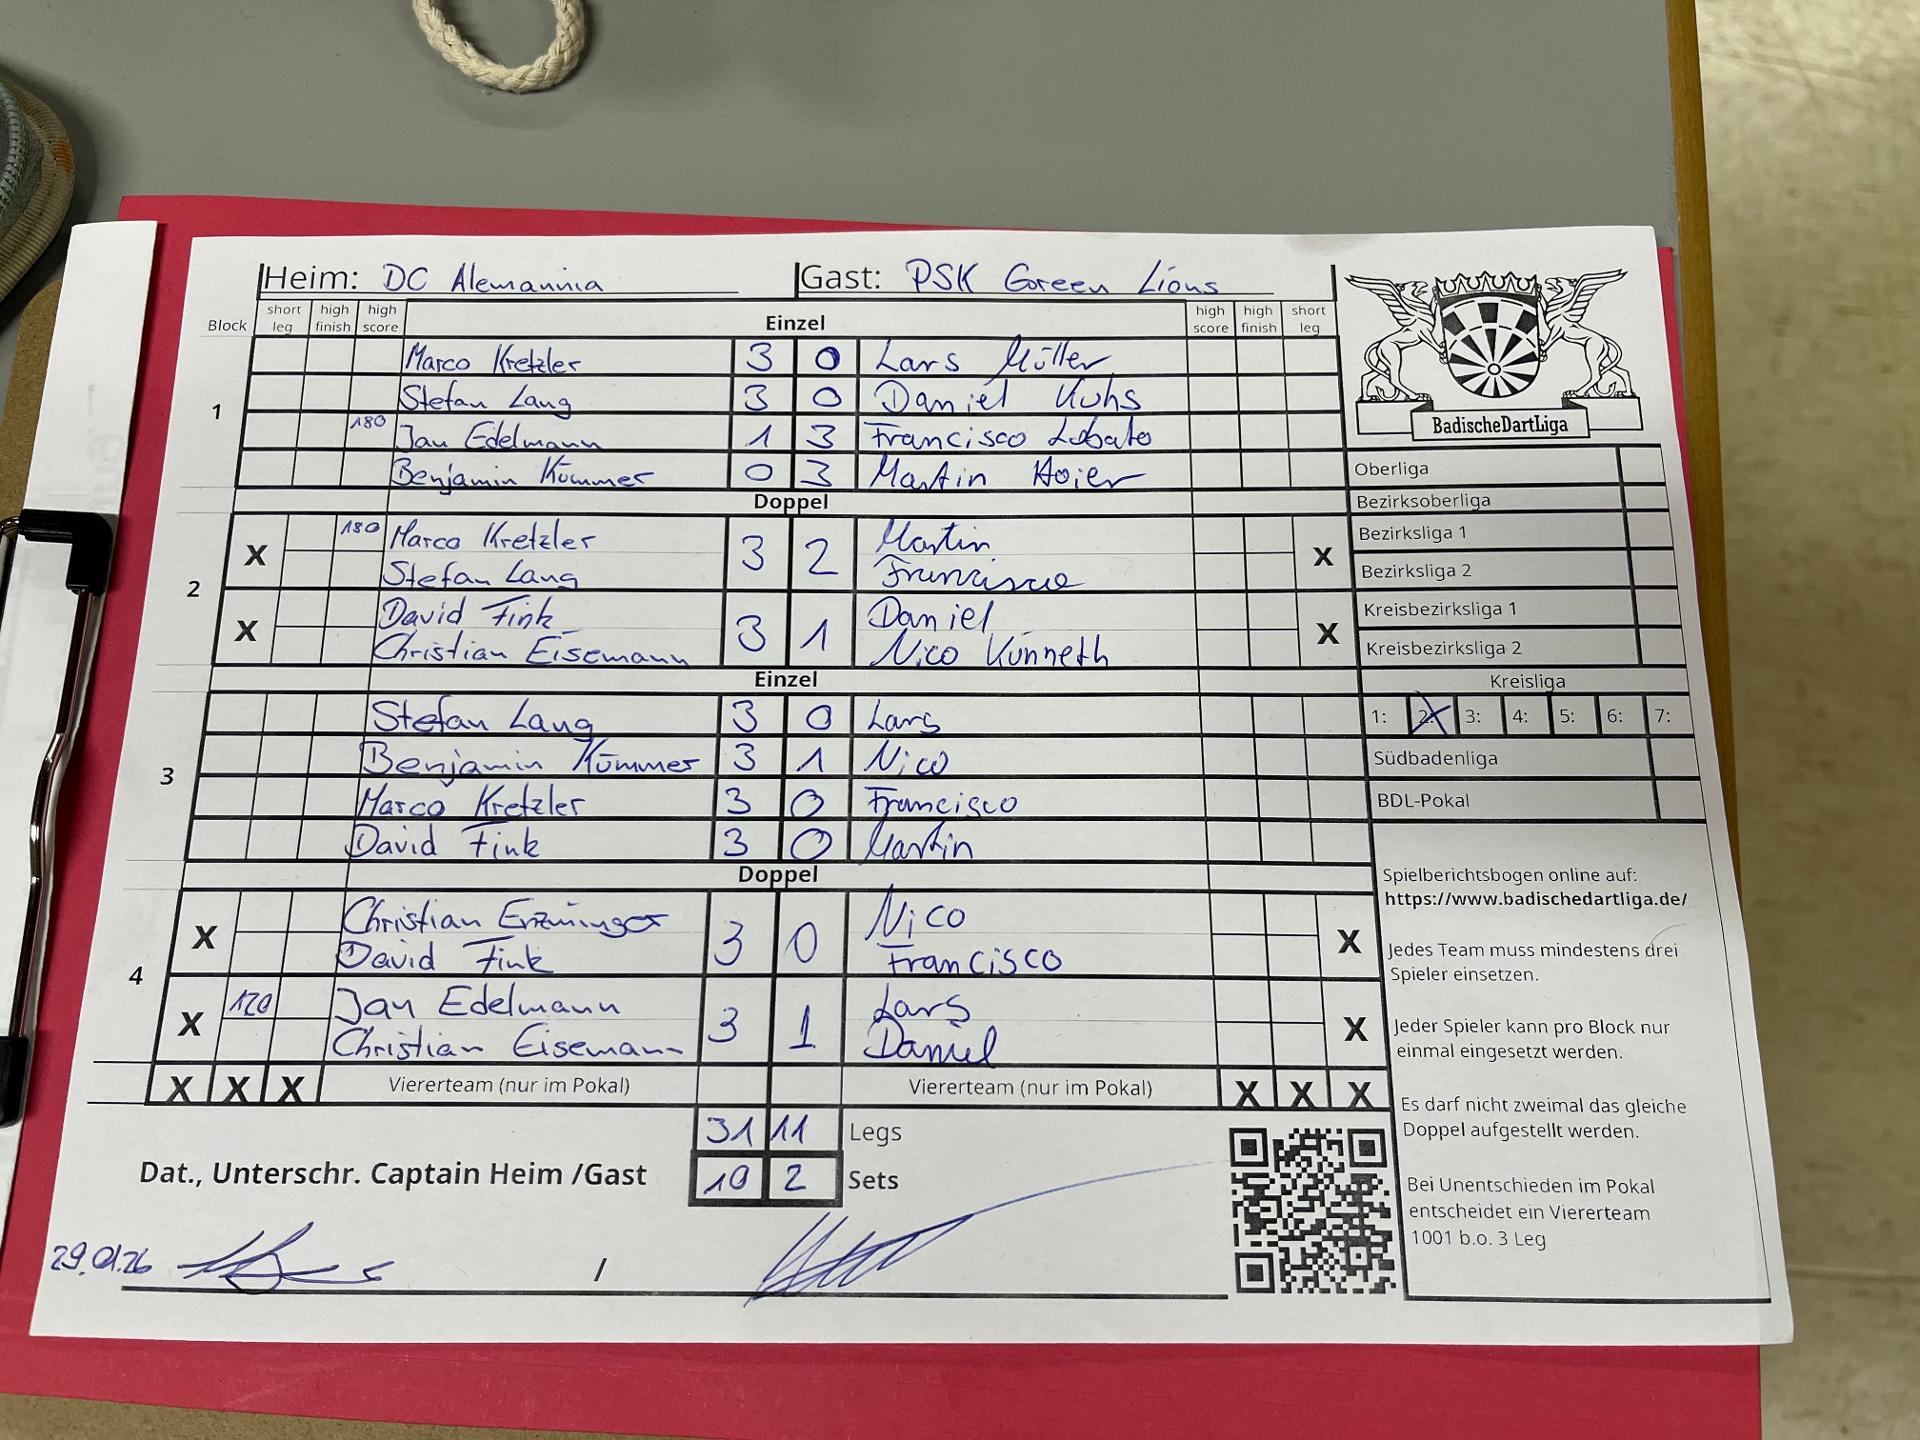 Heim: DC Alemannia Gast: PSK Green Lions
Block short leg high finish high score Einzel high score high finish short leg
1
Marco Kretzler 3 0 Lars Müller
Stefan Lang 3 0 Daniel Kuhs
180 Jan Edelmann 1 3 Francisco Lobato
Benjamin Kümmer 0 3 Martin Hoier
Doppel
2
X 180 Marco Kretzler 3 2 Martin X
Stefan Lang Francisco
X David Fink 3 1 Daniel X
Christian Eisemann Nico Künneth
Einzel
3
Stefan Lang 3 0 Lars
Benjamin Kümmer 3 1 Nico
Marco Kretzler 3 0 Francisco
David Fink 3 0 Martin
Doppel
4
X Christian 3 0 Nico X
David Fink Francisco
X 120 Jan Edelmann 3 1 Lars X
Christian Eisemann Daniel
X X X Viererteam (nur im Pokal) Viererteam (nur im Pokal) X X X
31 11 Legs
Dat., Unterschr. Captain Heim /Gast 10 2 Sets
29.01.26 /
BadischeDartLiga
Oberliga
Bezirksoberliga
Bezirksliga 1
Bezirksliga 2
Kreisbezirksliga 1
Kreisbezirksliga 2
Kreisliga
1: 2: X 3: 4: 5: 6: 7:
Südbadenliga
BDL-Pokal
Spielberichtsbogen online auf:
https://www.badischedartliga.de/
Jedes Team muss mindestens drei
Spieler einsetzen.
Jeder Spieler kann pro Block nur
einmal eingesetzt werden.
Es darf nicht zweimal das gleiche
Doppel aufgestellt werden.
Bei Unentschieden im Pokal
entscheidet ein Viererteam
1001 b.o. 3 Leg